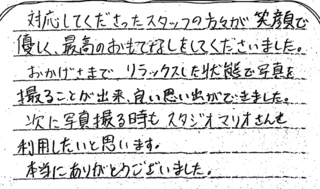 対応してくださったスタッフの方々が笑顔で
優しく、最高のおもてなしをしてくださいました。
おかげさまで リラックスした状態で写真を
撮ることが出来、良い思い出ができました。
次に写真撮る時も スタジオマリオさんを
利用したいと思います。
本当にありがとうございました。